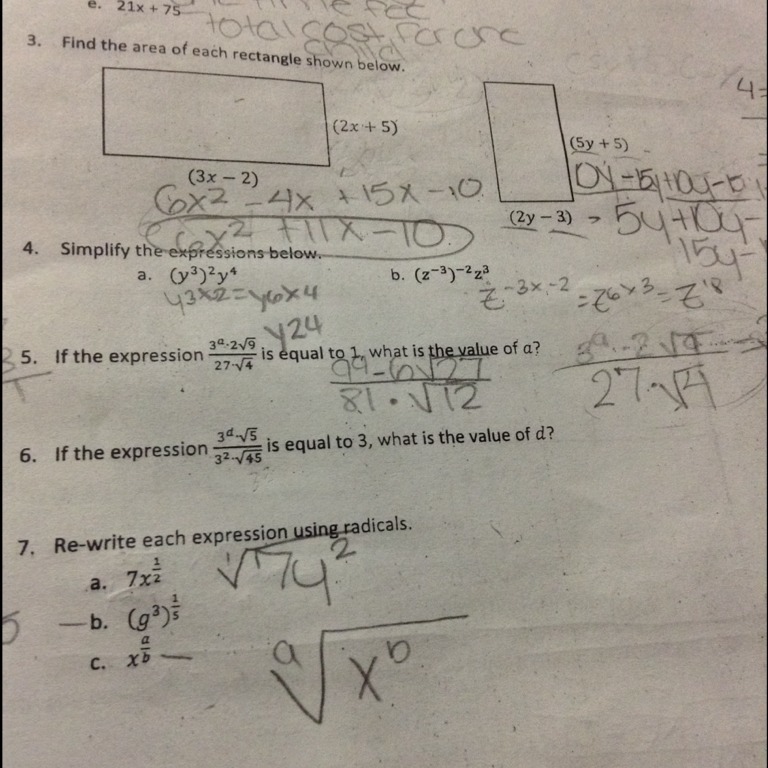 e. 21x + 75
total cost for one
child
3. Find the area of each rectangle shown below.
(2x + 5)
(3x − 2)
6x² − 4x + 15x − 10
6x² + 11x − 10
(5y + 5)
(2y − 3)
5y + 10y −
15y −
4. Simplify the expressions below.
a. (y³)²y⁴
y3x2 = y6x4
y24
b. (z⁻³)⁻²z³
z⁻³ˣ⁻² = z⁶ˣ³ = z¹⁸
5. If the expression 3ᵃ·2√9 / 27·√4 is equal to 1, what is the value of a?
81 · √12
27·√4
6. If the expression 3ᵈ·√5 / 3²·√45 is equal to 3, what is the value of d?
7. Re-write each expression using radicals.
a. 7x^(1/2)
√7y²
b. (g³)^(1/5)
c. x^(a/b)
ᵃ√xᵇ